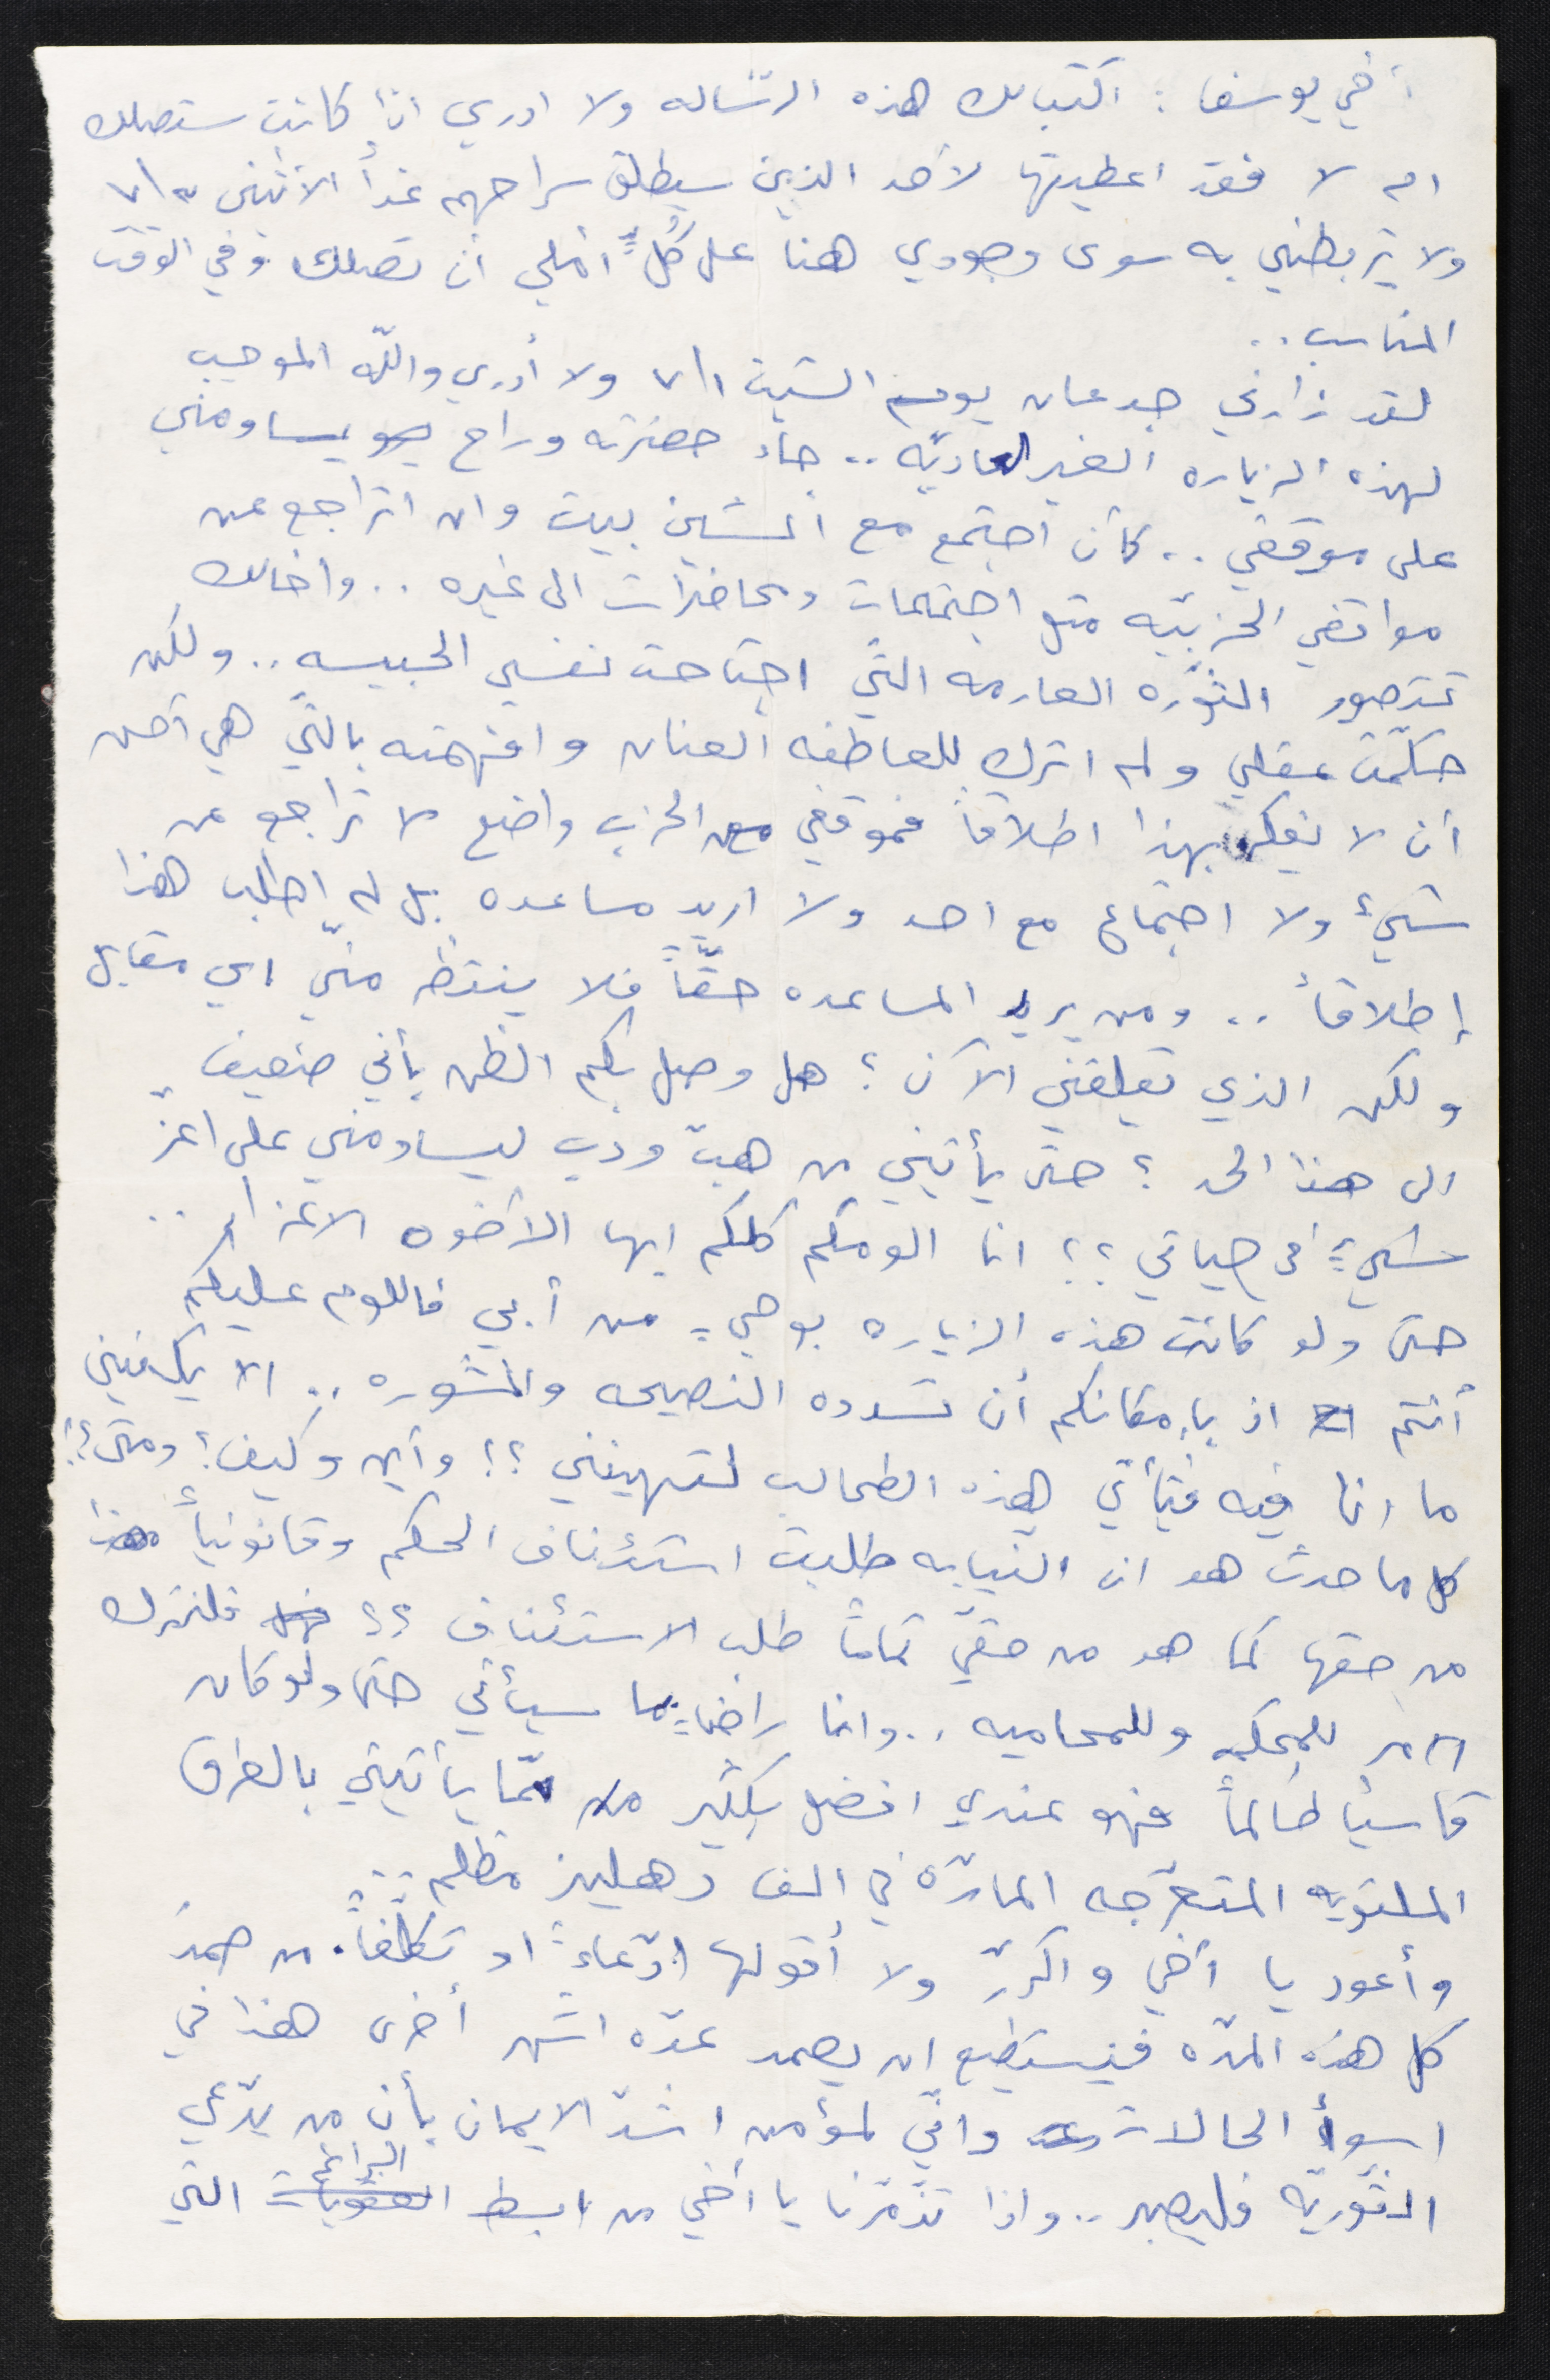 أخي يوسف : اكتب لك هذه الرساله ولا ادري اذا كانت ستصلك
ام لا فقد اعطيتها لأحد الذين سيطلق سراحهم غداً الاثنين ٧/٣
ولا يربطني به سوى وجودي هنا على كلٍّ أملي أن تصلك وفي الوقت
المناسب ..
لقد زارني جدعان يوم السبت ٧/١ ولا أدري والله الموجب
لهذه الزياره الغير العاديّه .. جاء حضرته وراح يساومني
على موقفي .. كأن اجتمع مع المستر بيت وان اتراجع عن
مواقفي الحزبيّه مثل اجتماعات ومحاضرات الى غيره .. واخالك
تتصور الثّوره العارمه التي اجتاحت نفسي الحبيسه .. ولكن
حكّمت عقلي ولم اترك للعاطفه العنان وافهمته بالتي هي أحسن
أن لا يفكر بهذا اطلاقاً فموقفي مع الحزب واضح لا تراجع عن
شيء ولا اجتماع مع احد ولا اريد مساعده بل لم اطلب هذا
إطلاقاً .. ومن يريد المساعده حقّاً فلا ينتظر منّي اي مقابل
ولكن الذي يقلقني الآن ؟ هل وصل بكم الظن بأني ضعيف
الى هذا الحد ؟ حتى يأتيني من هبّ ودب ليساومني على اعزّ
شيء في حياتي ؟؟ انا الومكم كلكم ايها الأخوه الاعزاء ..
حتى ولو كانت هذه الزياره بوحيٍ من أبي فاللوم عليكم
أنتم اذ بإمكانكم أن تسدوه النصيحه والمشوره .. الا يكفيني
ما انا فيه فتأتي هذه الطحالب لتهينني ؟؟ وأين وكيف ؟ ومتى ؟؟
كل ما حدث هو ان النيابه طلبت استئناف الحكم وقانونياً هذا
من حقها كما هو من حقّي تماماً طلب الاستئناف ؟؟ فلنترك
الأمر للمحكمه وللمحاميه .. وانا راضٍ بما سيأتي حتى ولو كان
قاسياً ظالماً فهو عندي افضل بكثير ممّا يأتيني بالطرق
الملتويه المتعرّجه المارّه في الف دهليز مظلم ..
وأعود يا أخي واكرّر ولا أقولها ادّعاءً او تكلّفاً . من صمد
كل هذه المدّه فيستطيع ان يصمد عدّه اشهر أخرى هذا في
اسوأ الحالات وانّي لمؤمن اشدّ الايمان بأن من يدّعي
الثّوريّه فليصبر .. واذا تذمّرنا يا أخي من ابسط التي